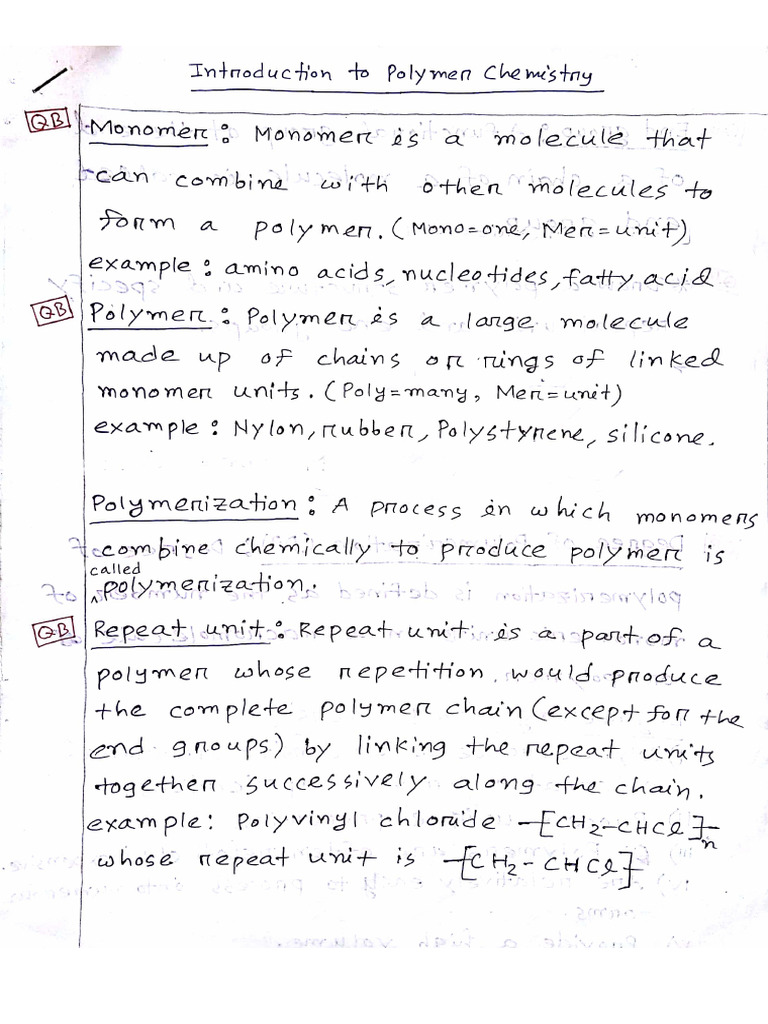 Introduction to Polymer Chemistry
QB
Monomer: Monomer is a molecule that
can combine with other molecules to
form a polymer. (Mono=one, Mer=unit)
example: amino acids, nucleotides, fatty acid
QB
Polymer: Polymer is a large molecule
made up of chains or rings of linked
monomer units. (Poly=many, Mer=unit)
example: Nylon, rubber, Polystyrene, silicone.
Polymerization: A process in which monomers
combine chemically to produce polymer is
called
polymerization.
QB
Repeat unit: Repeat unit is a part of a
polymer whose repetition would produce
the complete polymer chain (except for the
end groups) by linking the repeat units
together successively along the chain.
example: Polyvinyl chloride -[CH2-CHCl]-n
whose repeat unit is -[CH2-CHCl]-